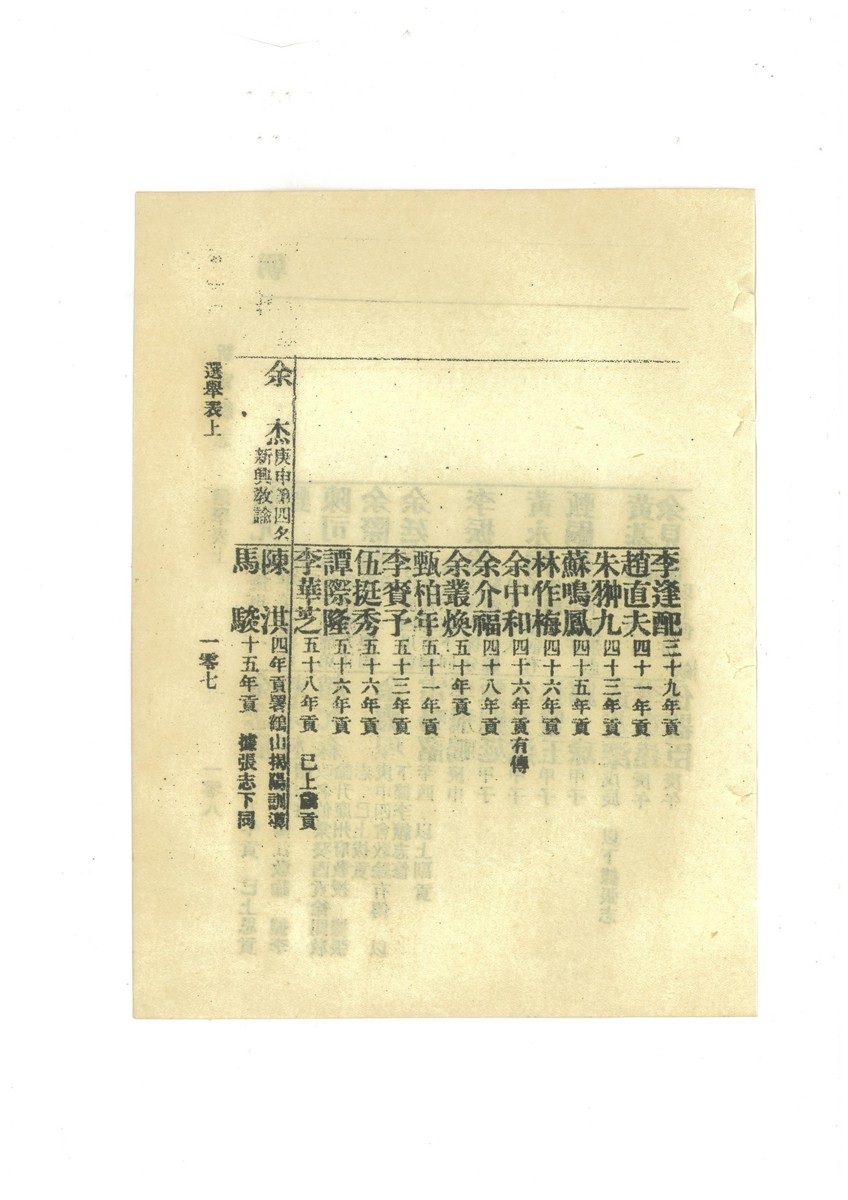 李逢配三十九年貢
趙直夫四十一年貢
朱翀九四十三年貢
蘇鳴鳳四十五年貢
林作梅四十六年貢
余中和四十六年貢有傳
余介福四十八年貢
余叢煥五十年貢
甄柏年五十一年貢
李賚予五十三年貢
伍挺秀五十六年貢
譚際隆五十六年貢
李華芝五十八年貢 已上歲貢
余 杰庚申第四名
新興教諭
陳 淇四年貢署鶴山揭陽訓導
馬 駿十五年貢 據張志下同
選舉表上
一零七